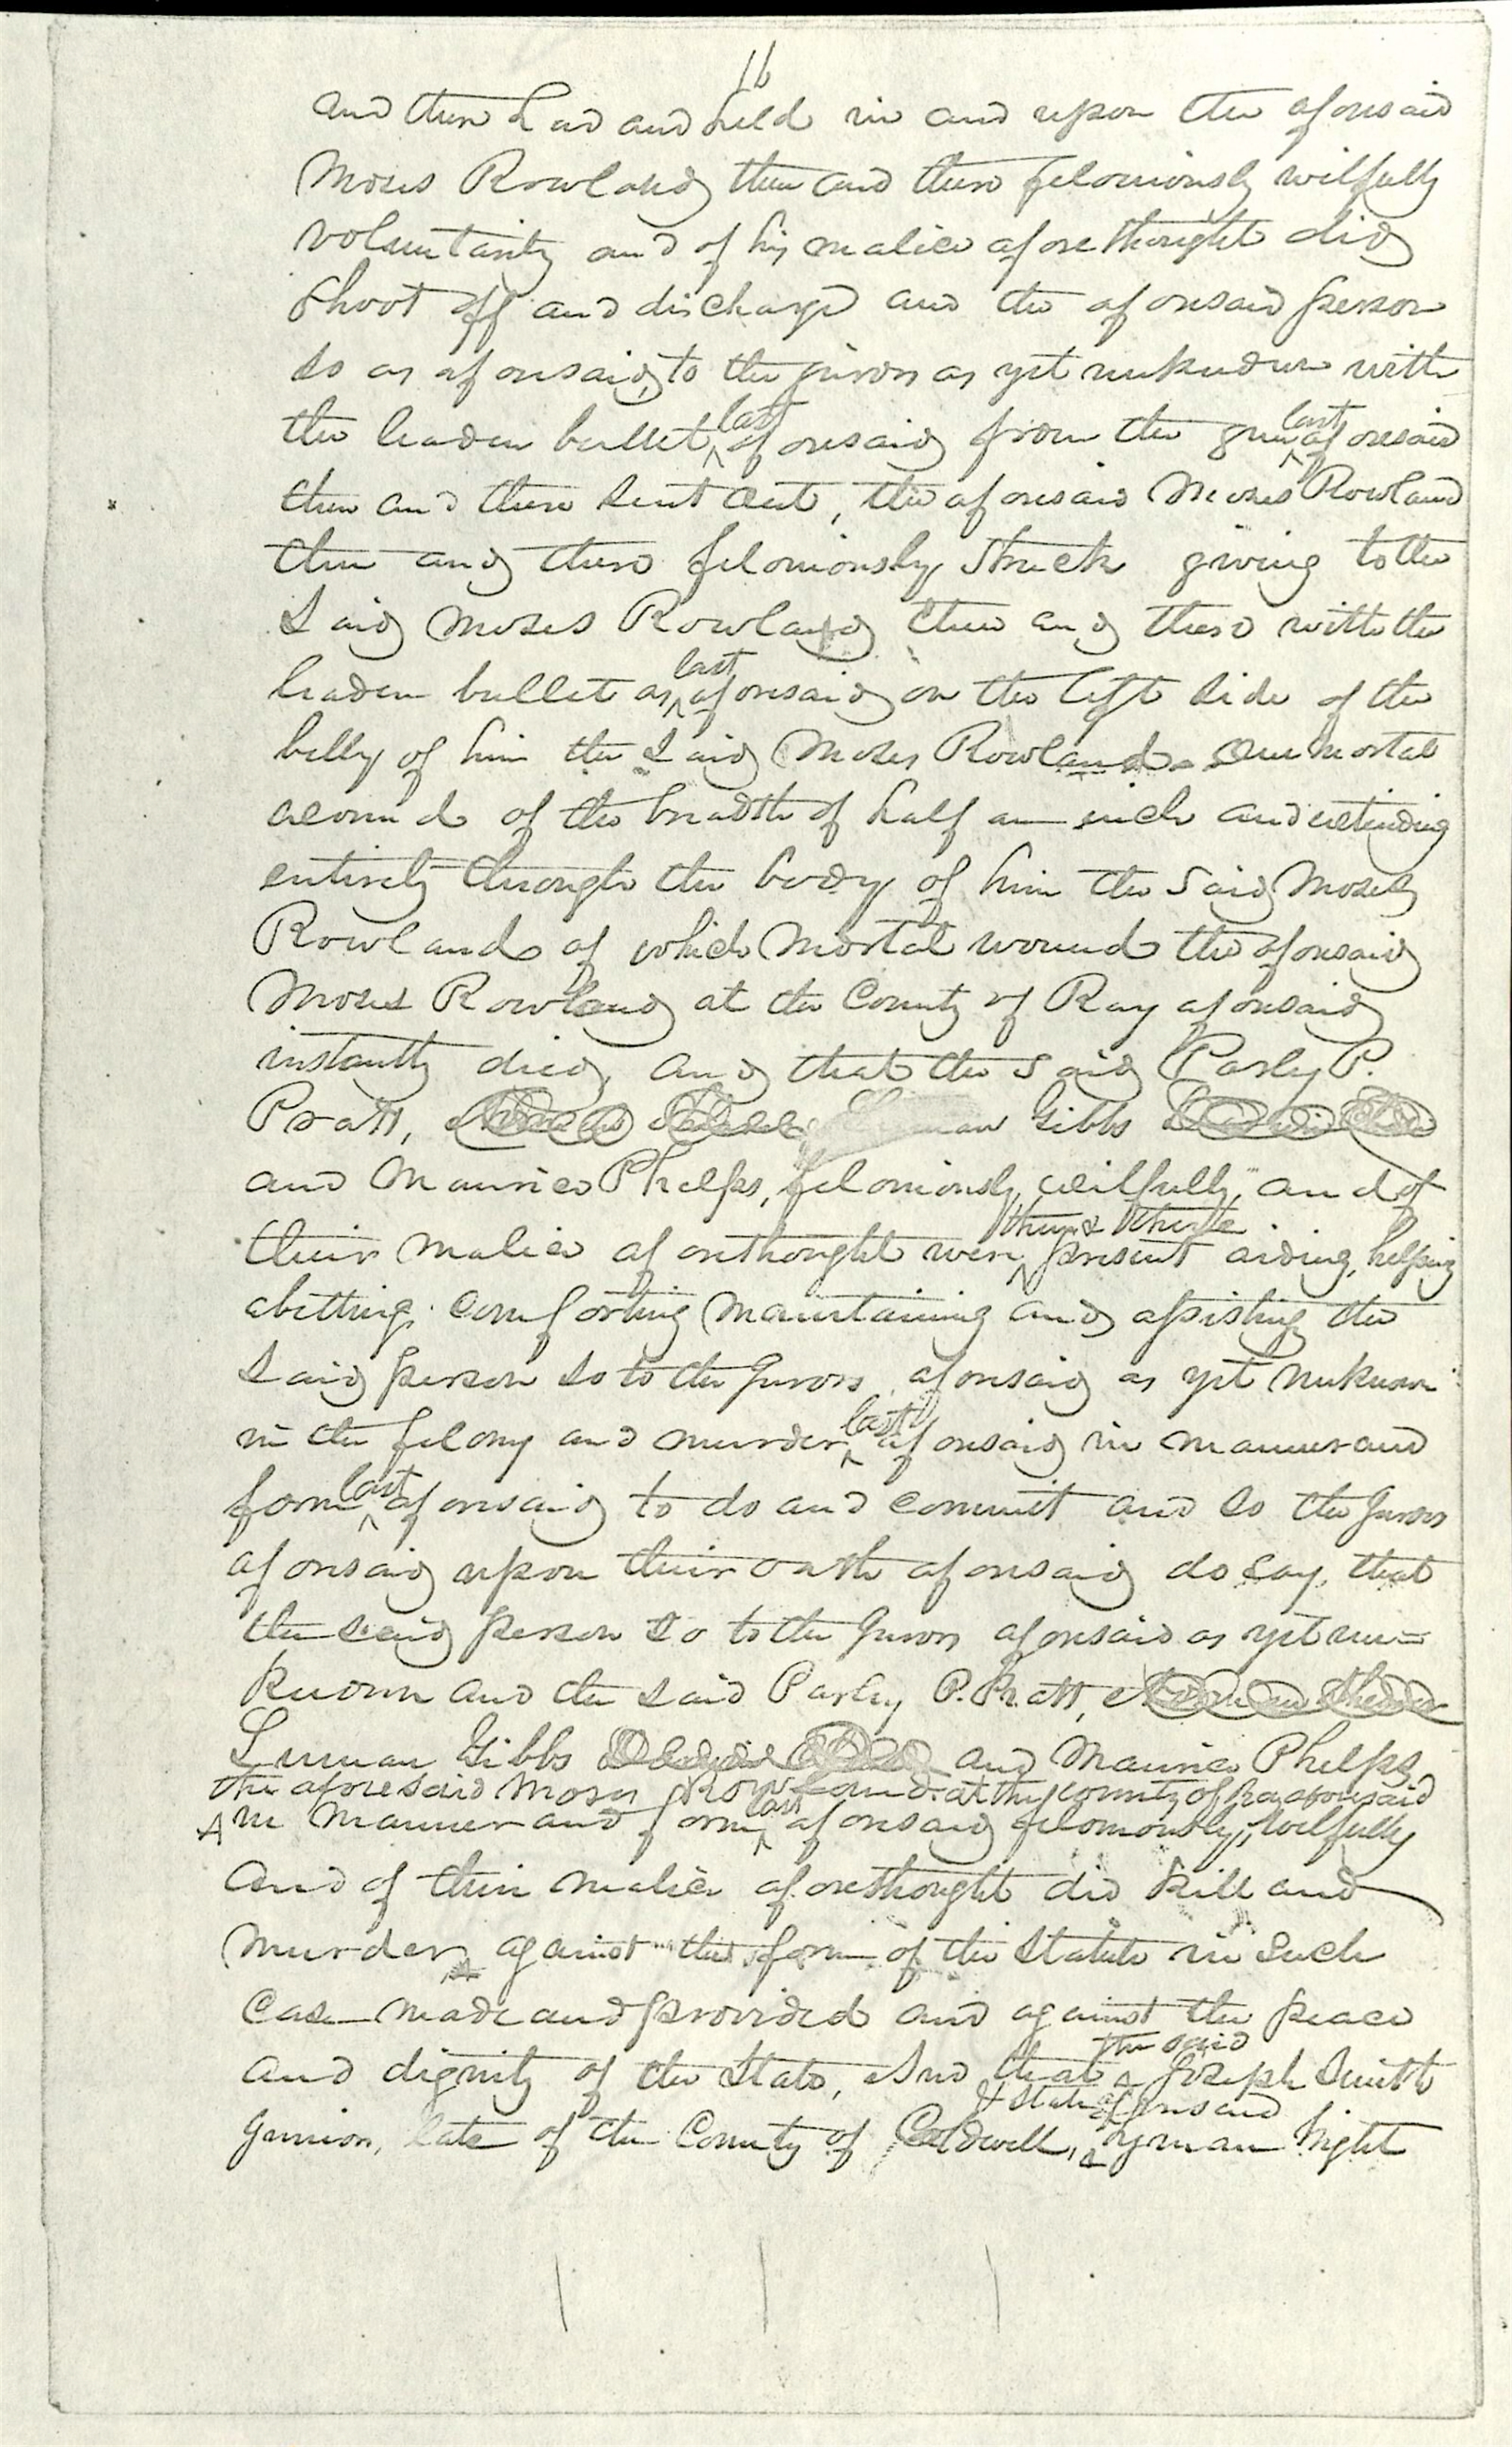 16
and then had and held in and upon the aforesaid
Moses Rowland then and there feloniously wilfully
voluntarily and of his malice aforethought did
shoot off and discharge and the aforesaid person
so as aforesaid, to the jurors as yet unknown with
the leaden bullet last aforesaid from the gun last aforesaid
then and there sent out, the aforesaid Moses Rowland
then and there feloniously struck giving to the
said Moses Rowland then and there with the
leaden bullet as last aforesaid on the left side of the
belly of him the said Moses Rowland one mortal
wound of the breadth of half an inch and extending
entirely through the body of him the said Moses
Rowland of which mortal wound the aforesaid
Moses Rowland at the County of Ray aforesaid
instantly died, and that the said Parley P.
Pratt, Luman Gibbs
and Maurice Phelps, feloniously, wilfully, and of
their malice aforethought were then & there present aiding, helping
abetting, comforting maintaining and assisting the
said person so to the Jurors aforesaid as yet unknown
in the felony and murder last aforesaid in manner and
form last aforesaid to do and commit and so the Jurors
aforesaid upon their oath aforesaid do say, that
the said person so to the Jurors aforesaid as yet un=
known and the said Parley P. Pratt,
Luman Gibbs and Maurice Phelps
the aforesaid Moses Rowland at the county of Ray aforesaid
in manner and form last aforesaid feloniously, wilfully
and of their malice aforethought did kill and
murder, against the form of the Statute in such
case made and provided and against the peace
and dignity of the State, And that the said Joseph Smith
Junior, late of the County of Caldwell, & State aforesaid Lyman Wight